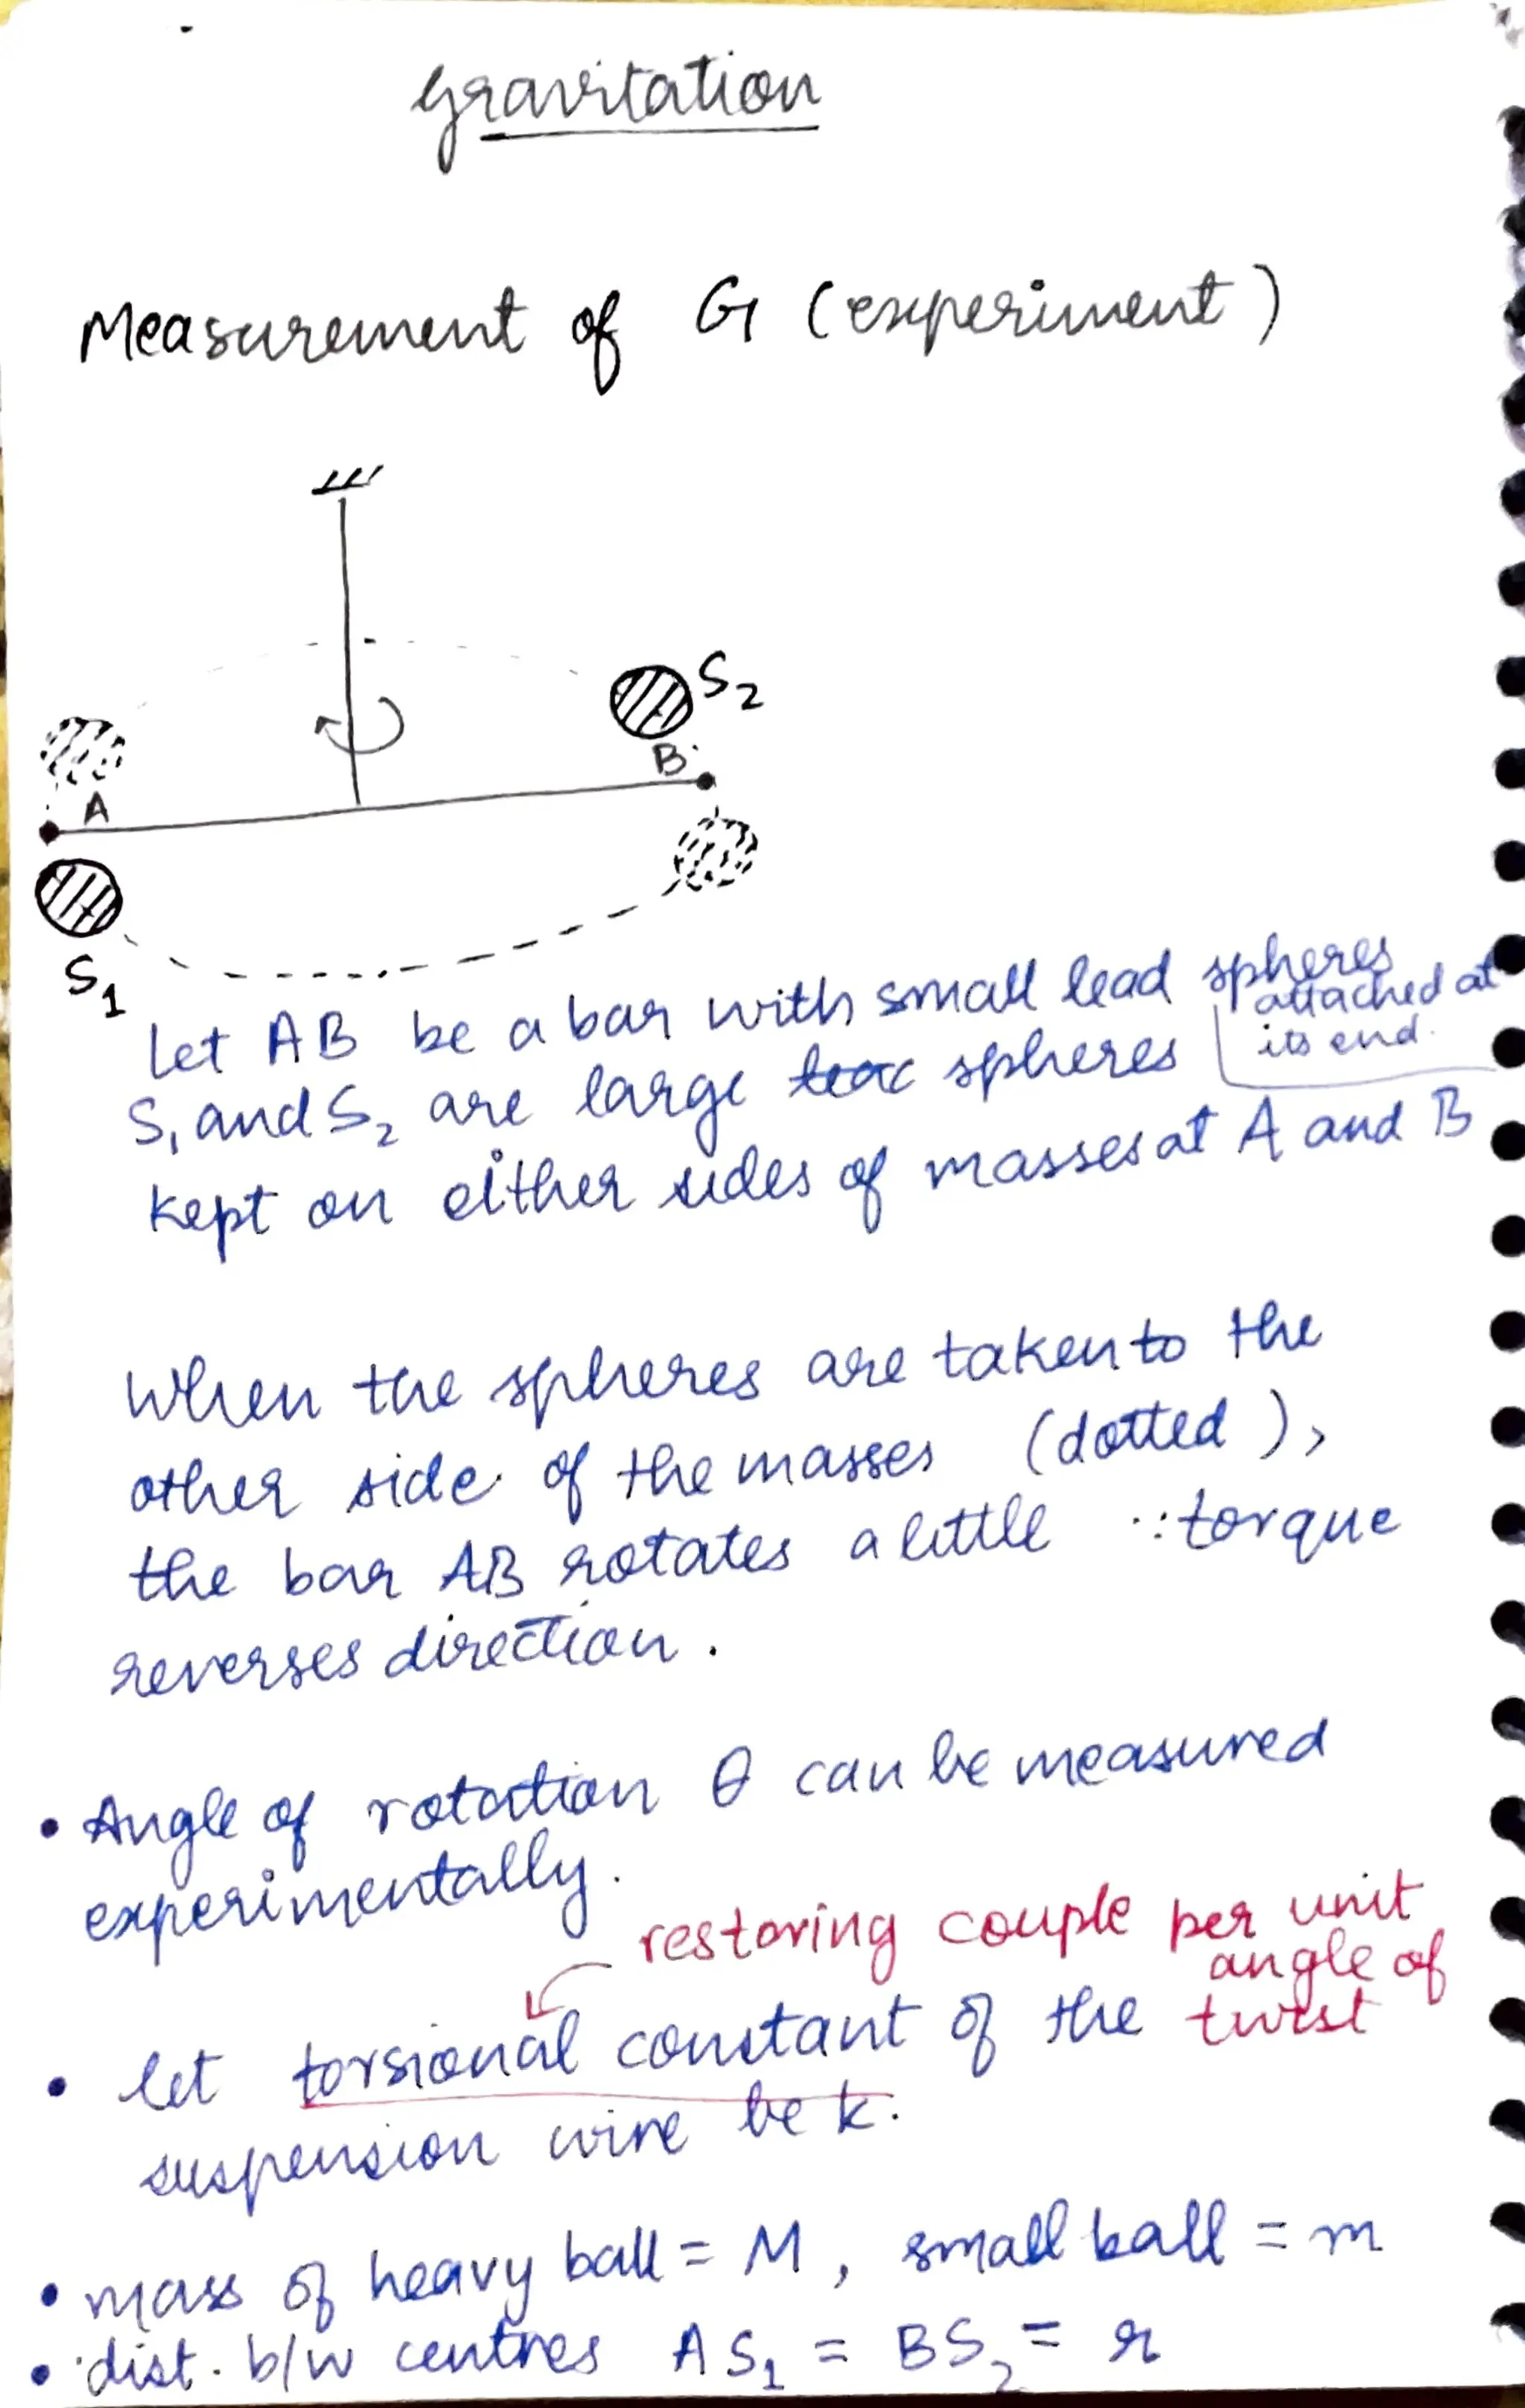 Gravitation
Measurement of G (experiment)
S2
B
A
S1
Let AB be a bar with small lead spheres
attached at
its end.
S1 and S2 are large spheres
kept on either sides of masses at A and B
When the spheres are taken to the
other side of the masses (dotted),
the bar AB rotates a little ∵ torque
reverses direction.
• Angle of rotation θ can be measured
experimentally.
restoring couple per unit
angle of
twist
• let torsional constant of the
suspension wire be k.
• mass of heavy ball = M, small ball = m
• dist. b/w centres AS1 = BS2 = r